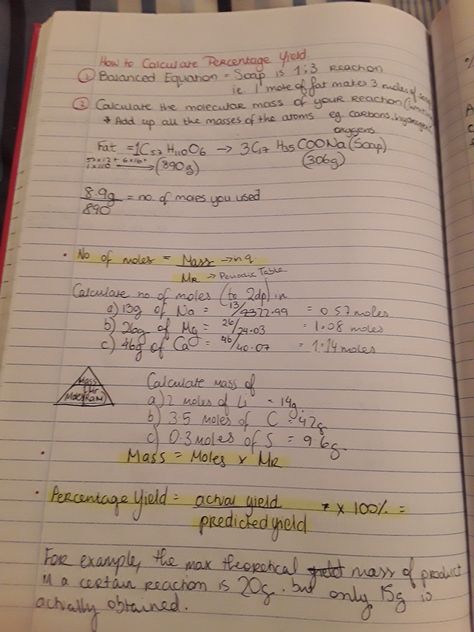 How to Calculate Percentage Yield
① Balanced Equation = Soap is 1:3 reaction
i.e. 1 mole of fat makes 3 moles of soap
② Calculate the molecular mass of your reaction
* Add up all the masses of the atoms eg carbons, hydrogens
oxygens
Fat = 1C57 H110O6 → 3C17 H35 COONa (Soap)
(890g) (306g)
8.9g
890 = no. of moles you used
• No of moles = Mass → in g
Mr → Periodic Table
Calculate no. of moles (to 2dp) in
a) 13g of Na = = 0.57 moles
b) 26g of Mg = 26/24.03 = 1.08 moles
c) 46g of Ca = 46/40.07 = 1.14 moles
Mass
Calculate mass of
a) 2 moles of Li = 14g
b) 3.5 moles of C = 42g
c) 0.3 moles of S = 9.6g
Mass = Moles × Mr
• Percentage Yield = actual yield × 100% =
predicted yield
For example, the max theoretical mass of product
in a certain reaction is 20g. but only 15g is
actually obtained.